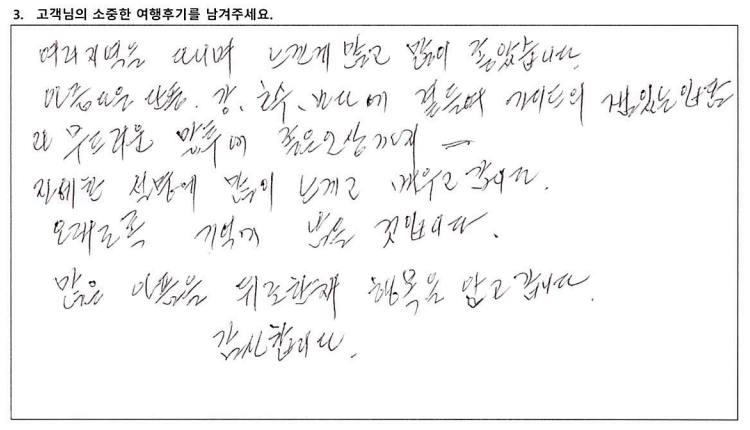 3. 고객님의 소중한 여행후기를 남겨주세요.
여러지역을 다니며 느낀게 많고 많이 좋았습니다.
아름다운 산등. 강, 호수, 바다에 곁들여 가이드의 재밌있는 입담
과 부드러운 말투에 좋은인상까지 ㅡ
자세한 설명에 많이 느끼고 배우고 갑니다.
오래도록 기억에 남을 것입니다.
많은 아픔을 뒤로한채 행복을 안고 갑니다.
감사합니다.